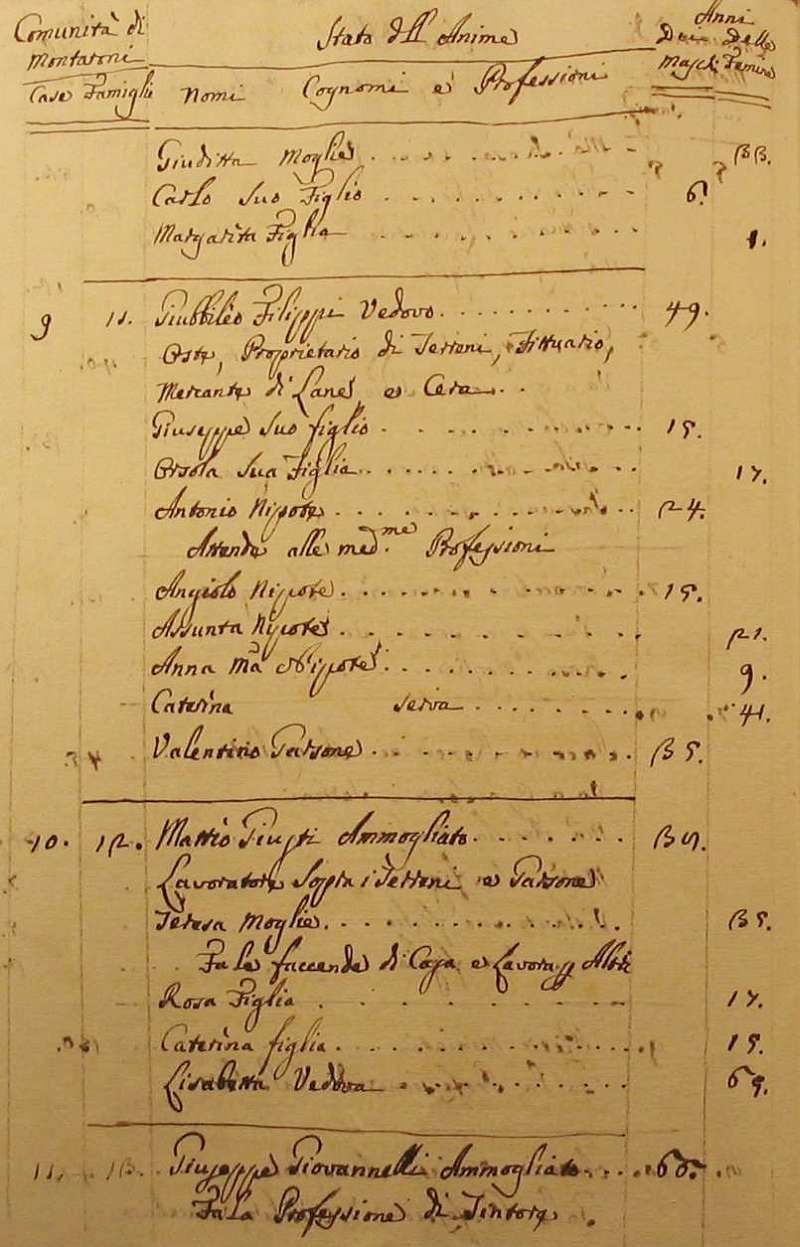 Comunità di Stato dell Anime Anni
Montaroni Dei Delle
Case Famiglie Nomi Cognomi e Professioni Maschi Femine
Giuditta Moglie 33.
Carlo Suo Figlio 6.
Margarita Figlia 1.
9 11. Giubbileo Filippi Vedovo 49.
Oste, Proprietario di Terreni, Fittuario,
Mercante di Lane e Cera
Giuseppe Suo figlio 15.
Orsola Sua Figlia 17.
Antonio Nipote 24.
Attende alle med.me Professioni
Angiolo Nipote 15.
Assunta Nipote 21.
Anna Ma Nipote 9.
Caterina serva 41.
Valentino Garzone 35.
10. 12. Matteo Giusti Ammogliato
Lavoratore Sopra i Terreni e Garzone
Teresa Moglie 35.
Fa le faccende di Casa e Lavora
Rosa Figlia 17.
Caterina figlia 15.
Lisabetta Vedova 69.
11. 13. Giuseppe Giovannelli Ammogliato 60.
Fa la Professione di Tintore.